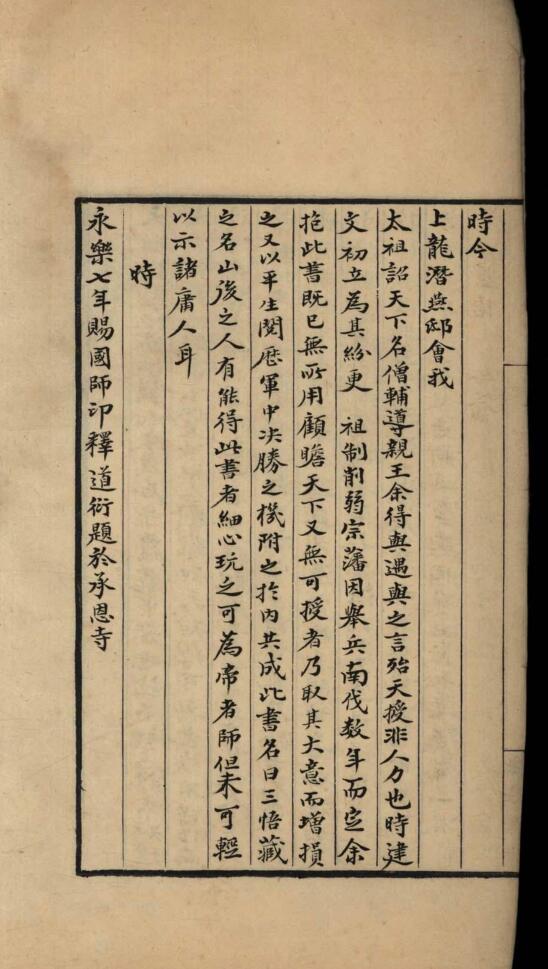 時今
上龍潛燕邸會我
太祖詔天下名僧輔導親王余得與遇與之言殆天授非人力也時建
文初立為其紛更　祖制削弱宗藩因舉兵南伐数年而定余
抱此書既已無所用顧瞻天下又無可授者乃取其大意而增損
之又以平生閱歷軍中决勝之機附之於內共成此書名曰三悟藏
之名山後之人有能得此書者細心玩之可為帝者師但未可輕
以示諸庸人耳
時
永樂七年賜國師印釋道衍題於承恩寺